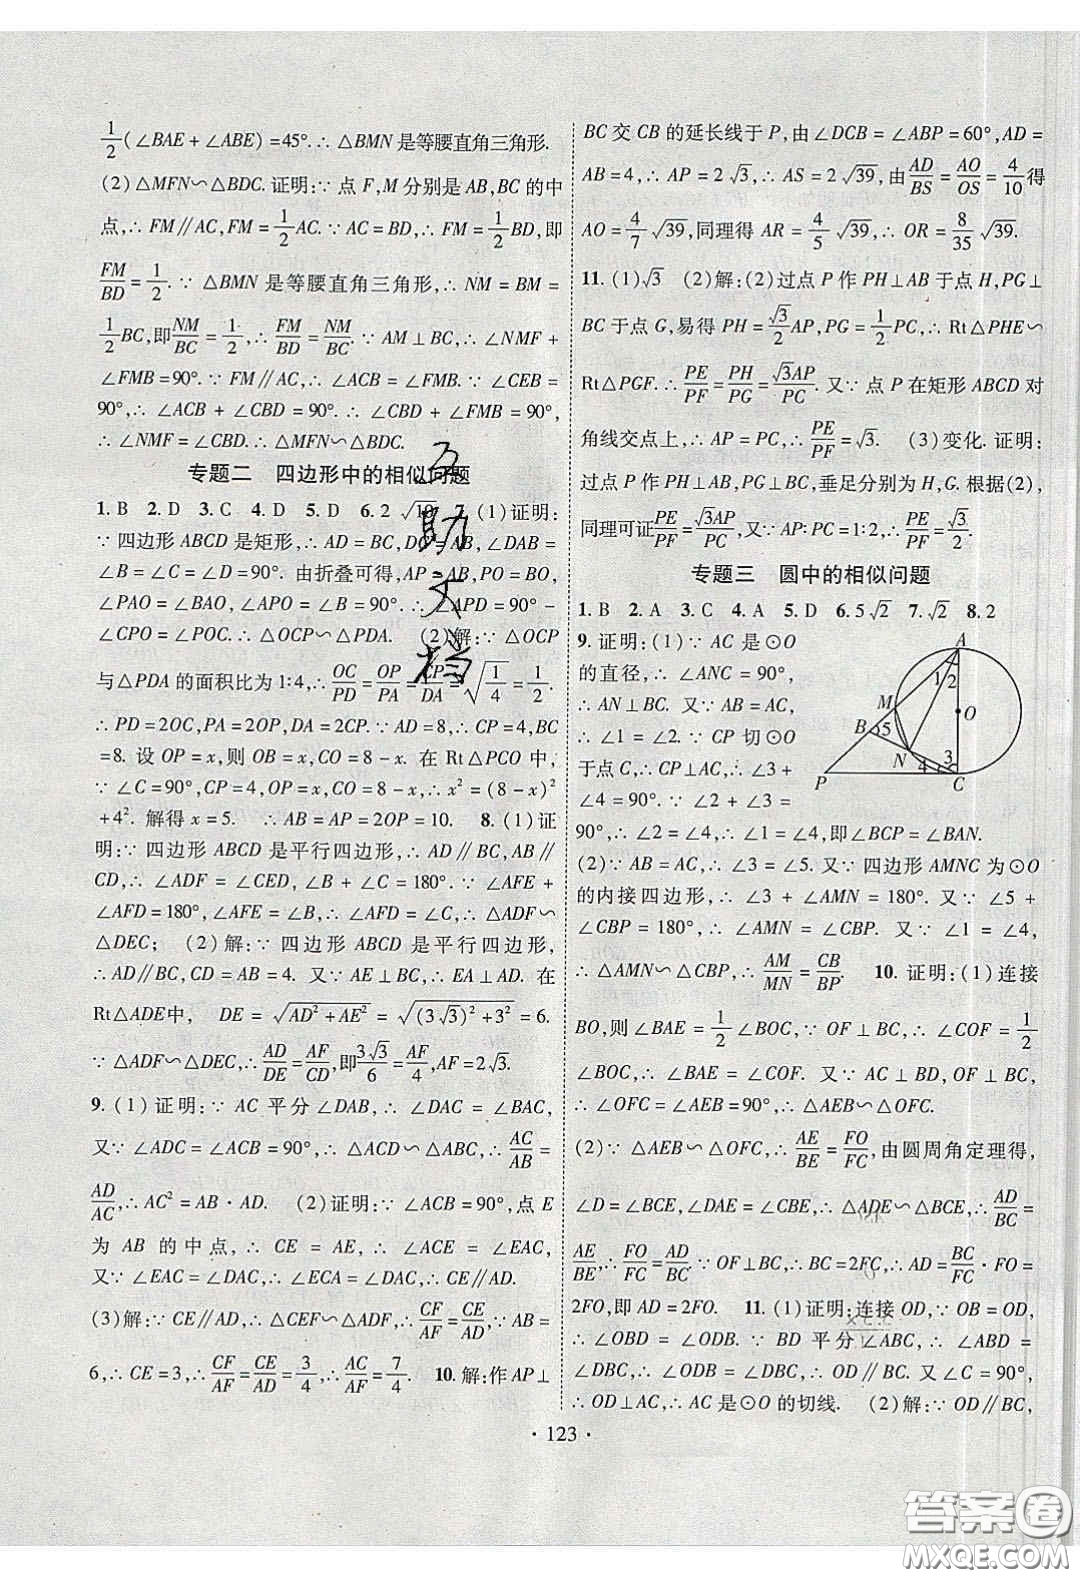 1/2(∠BAE + ∠ABE) = 45°. ∴ △BMN 是等腰直角三角形.
(2) △MFN∽△BDC. 证明:∵ 点 F,M 分别是 AB,BC 的中
点,∴ FM∥AC,FM = 1/2 AC. ∵ AC = BD,∴ FM = 1/2 BD,即
FM/BD = 1/2. ∵ △BMN 是等腰直角三角形,∴ NM = BM =
1/2 BC,即 NM/BC = 1/2. ∴ FM/BD = NM/BC. ∵ AM⊥BC,∴ ∠NMF +
∠FMB = 90°. ∵ FM∥AC,∴ ∠ACB = ∠FMB. ∵ ∠CEB =
90°,∴ ∠ACB + ∠CBD = 90°. ∴ ∠CBD + ∠FMB = 90°,
∴ ∠NMF = ∠CBD. ∴ △MFN∽△BDC.
专题二 四边形中的相似问题
1. B 2. D 3. C 4. D 5. D 6. 2√10 7. (1)证明:
∵ 四边形 ABCD 是矩形,∴ AD = BC,DC = AB,∠DAB =
∠B = ∠C = ∠D = 90°. 由折叠可得,AP = AB,PO = BO,
∠PAO = ∠BAO,∠APO = ∠B. ∴ ∠APD = 90° −
∠CPO = ∠POC. ∴ △OCP∽△PDA. (2)解:∵ △OCP
与△PDA 的面积比为 1∶4,∴ OC/PD = OP/PA = CP/DA = √(1/4) = 1/2.
∴ PD = 2OC,PA = 2OP,DA = 2CP. ∵ AD = 8,∴ CP = 4,BC
= 8. 设 OP = x,则 OB = x,CO = 8 − x. 在 Rt△PCO 中,
∵ ∠C = 90°,CP = 4,OP = x,CO = 8 − x,∴ x² = (8 − x)²
+ 4². 解得 x = 5. ∴ AB = AP = 2OP = 10. 8. (1)证
明:∵ 四边形 ABCD 是平行四边形,∴ AD∥BC,AB∥
CD,∴ ∠ADF = ∠CED,∠B + ∠C = 180°. ∵ ∠AFE +
∠AFD = 180°,∠AFE = ∠B,∴ ∠AFD = ∠C,∴ △ADF∽
△DEC; (2)解:∵ 四边形 ABCD 是平行四边形,
∴ AD∥BC,CD = AB = 4. 又∵ AE⊥BC,∴ EA⊥AD. 在
Rt△ADE中, DE = √(AD² + AE²) = √((3√3)² + 3²) = 6.
∵ △ADF∽△DEC,∴ AD/DE = AF/CD,即 3√3/6 = AF/4,AF = 2√3.
9. (1)证明:∵ AC 平分 ∠DAB,∴ ∠DAC = ∠BAC,
又∵ ∠ADC = ∠ACB = 90°,∴ △ADC∽△ACB,∴ AC/AB =
AD/AC,∴ AC² = AB · AD. (2)证明:∵ ∠ACB = 90°,点 E
为 AB 的中点,∴ CE = AE,∴ ∠ACE = ∠EAC,
又∵ ∠EAC = ∠DAC,∴ ∠ECA = ∠DAC,∴ CE∥AD.
(3)解:∵ CE∥AD,∴ △CEF∽△ADF,∴ CF/AF = CE/AD,∵ AB =
6,∴ CE = 3,∴ CF/AF = CE/AD = 3/4,∴ AC/AF = 7/4. 10. 解:作 AP⊥
BC 交 CB 的延长线于 P,由 ∠DCB = ∠ABP = 60°,AD =
AB = 4,∴ AP = 2√3,∴ AS = 2√39,由 AD/BS = AO/OS = 4/10 得
AO = 4/7 √39,同理得 AR = 4/5 √39,∴ OR = 8/35 √39.
11. (1)√3 (2)解:(2)过点 P 作 PH⊥AB 于点 H,PG⊥
BC 于点 G,易得 PH = √3/2 AP,PG = 1/2 PC,∴ Rt△PHE∽
Rt△PGF. ∴ PE/PF = PH/PG = √3AP/PC. 又∵ 点 P 在矩形 ABCD 对
角线交点上,∴ AP = PC,∴ PE/PF = √3. (3)变化. 证明:
过点 P 作 PH⊥AB,PG⊥BC,垂足分别为 H,G. 根据(2),
同理可证 PE/PF = √3AP/PC,又∵ AP∶PC = 1∶2,∴ PE/PF = √3/2.
专题三 圆中的相似问题
1. B 2. A 3. C 4. A 5. D 6. 5√2 7. √2 8. 2
9. 证明:(1)∵ AC 是⊙O
的直径,∴ ∠ANC = 90°,
∴ AN⊥BC. 又∵ AB = AC,
∴ ∠1 = ∠2. ∵ CP 切⊙O
于点 C,∴ CP⊥AC,∴ ∠3 +
∠4 = 90°. ∵ ∠2 + ∠3 =
90°,∴ ∠2 = ∠4,∴ ∠1 = ∠4,即∠BCP = ∠BAN.
A
1
2
M
O
B
5
N
4
3
P
C
(2)∵ AB = AC,∴ ∠3 = ∠5. 又∵ 四边形 AMNC 为⊙O
的内接四边形,∴ ∠3 + ∠AMN = 180°. 又∵ ∠5 +
∠CBP = 180°,∴ ∠AMN = ∠CBP. 又∵ ∠1 = ∠4,
∴ △AMN∽△CBP,∴ AM/MN = CB/BP. 10. 证明:(1)连接
BO,则 ∠BAE = 1/2 ∠BOC,∵ OF⊥BC,∴ ∠COF = 1/2
∠BOC,∴ ∠BAE = ∠COF. 又∵ AC⊥BD,OF⊥BC,
∴ ∠OFC = ∠AEB = 90°,∴ △AEB∽△OFC.
(2)∵ △AEB∽△OFC,∴ AE/BE = FO/FC,由圆周角定理得,
∠D = ∠BCE,∠DAE = ∠CBE,∴ △ADE∽△BCE,∴ AD/BC =
AE/BE,∴ FO/FC = AD/BC. ∵ OF⊥BC,∴ BC = 2FC,∴ AD = BC/FC · FO =
2FO,即 AD = 2FO. 11. (1)证明:连接 OD,∵ OB = OD,
∴ ∠OBD = ∠ODB. ∵ BD 平分 ∠ABC,∴ ∠ABD =
∠DBC,∴ ∠ODB = ∠DBC,∴ OD∥BC. 又∠C = 90°,
∴ OD⊥AC,∴ AC 是⊙O 的切线. (2)解:∵ OD∥BC,
· 123 ·
五
助
文
档
答案圈
MXQE.COM